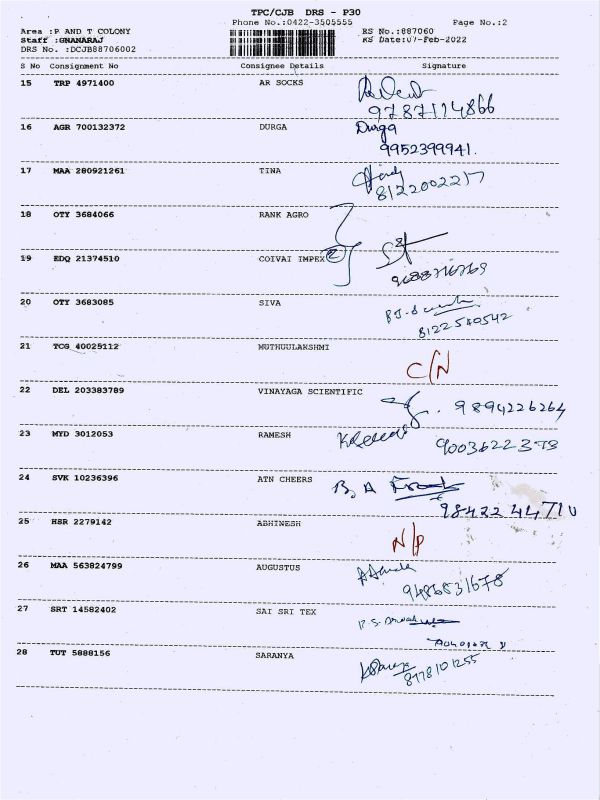 TPC/CJB DRS - P30
Phone No.:0422-3505555 Page No.:2
Area :P AND T COLONY RS No.:887060
Staff :GNANARAJ RS Date:07-Feb-2022
DRS No. :DCJB88706002
S No Consignment No Consignee Details Signature
15 TRP 4971400 AR SOCKS
9787114866
16 AGR 700132372 DURGA Durga
9952399941.
17 MAA 280921261 TINA
8122002217
18 OTY 3684066 RANK AGRO
19 EDQ 21374510 COIVAI IMPEX 2
20 OTY 3683085 SIVA
8122540542
21 TCG 40025112 MUTHUULAKSHMI
C/N
22 DEL 203383789 VINAYAGA SCIENTIFIC
9894226264
23 MYD 3012053 RAMESH
9003622373
24 SVK 10236396 ATN CHEERS B, A
25 HSR 2279142 ABHINESH
N/P
26 MAA 563824799 AUGUSTUS
9486831678
27 SRT 14582402 SAI SRI TEX
28 TUT 5888156 SARANYA
8778101255